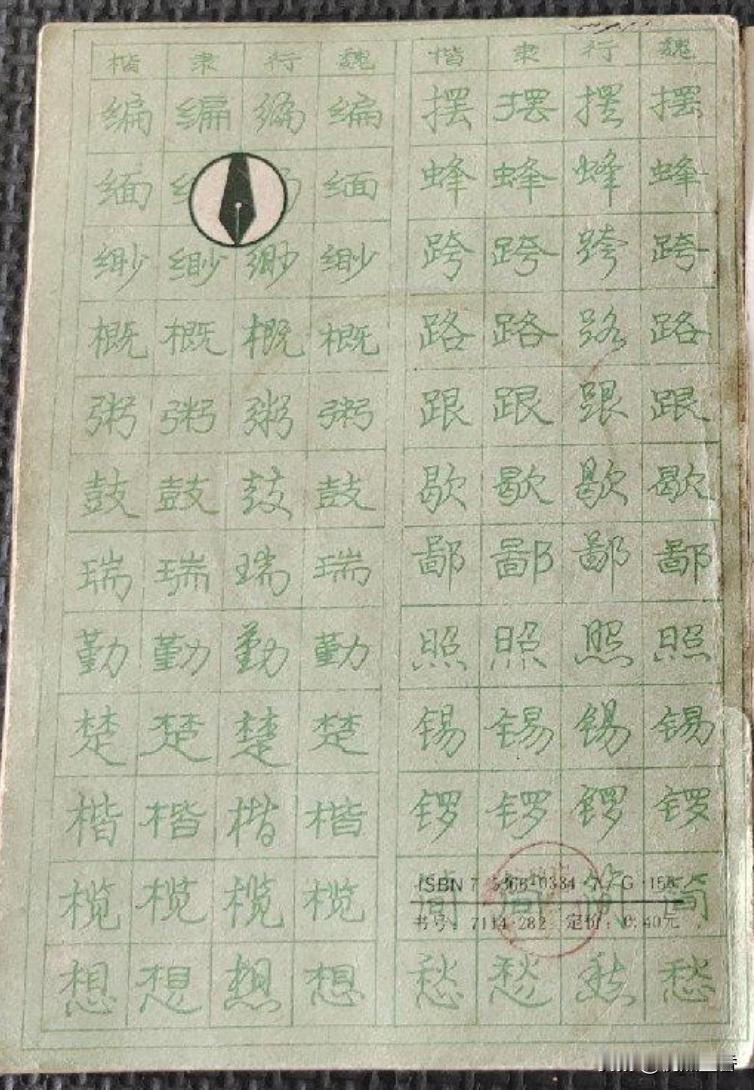 楷 隶 行 魏 楷 隶 行 魏
编 编 编 编 摆 摆 摆 摆
缅 缅 蜂 蜂 蜂 蜂
缈 缈 缈 缈 跨 跨 跨 跨
概 概 概 概 路 路 路 路
粥 粥 粥 粥 跟 跟 跟 跟
鼓 鼓 鼓 鼓 歇 歇 歇 歇
瑞 瑞 瑞 瑞 鄙 鄙 鄙 鄙
勤 勤 勤 勤 照 照 照 照
楚 楚 楚 楚 锡 锡 锡 锡
楷 楷 楷 楷 锣 锣 锣 锣
榄 榄 榄 榄 简 简 简 简
ISBN 7
书号：7114·282 定价：0.40元
想 想 想 想 愁 愁 愁 愁